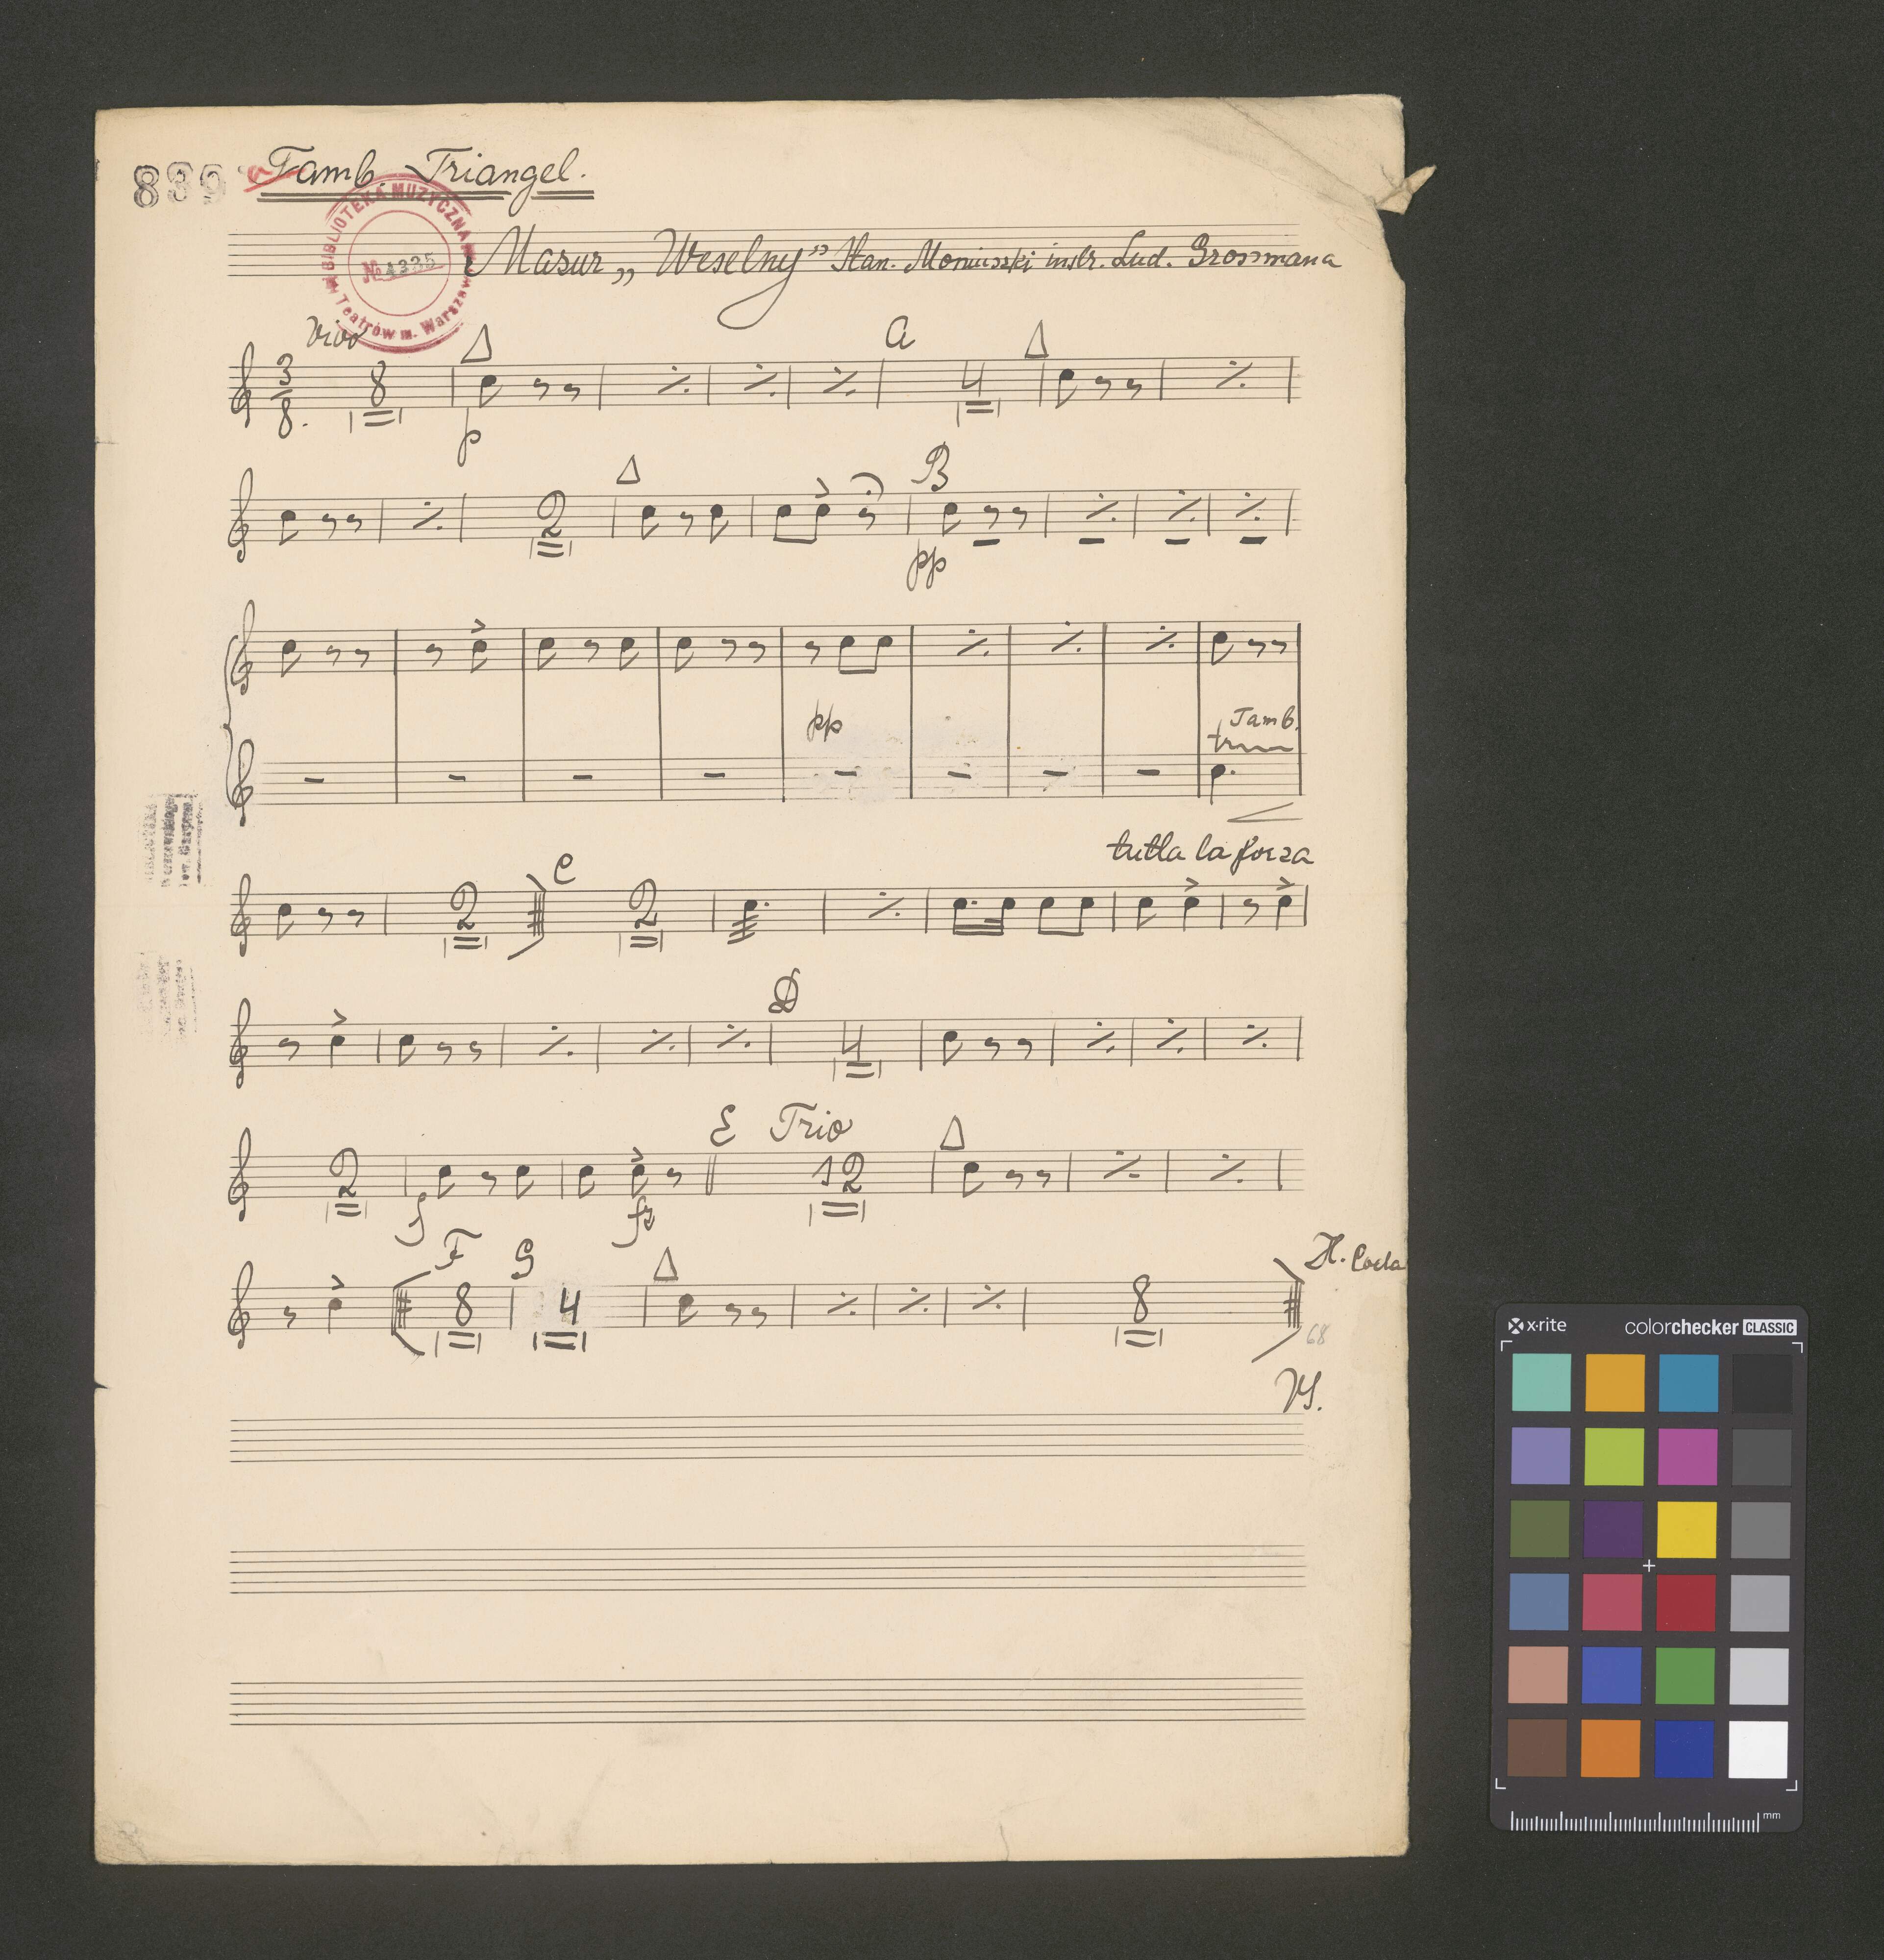 839 Tamb. Triangel.
BIBLIOTEKA MUZYCZNA
№ 4335
Teatrów m. Warszawy
Masur „Weselny” Stan. Moniuszki instr. Lud. Grossmana
Vivo
Δ
a
Δ
3
8.
8
4
p
Δ
B
2
pp
pp
Tamb.
tr
tutta la forza
C
2
2
D
4
E Trio
Δ
2
12
f
fz
F
G
Δ
H. Coda
8
4
8
68
VS.
x·rite
colorchecker CLASSIC
mm